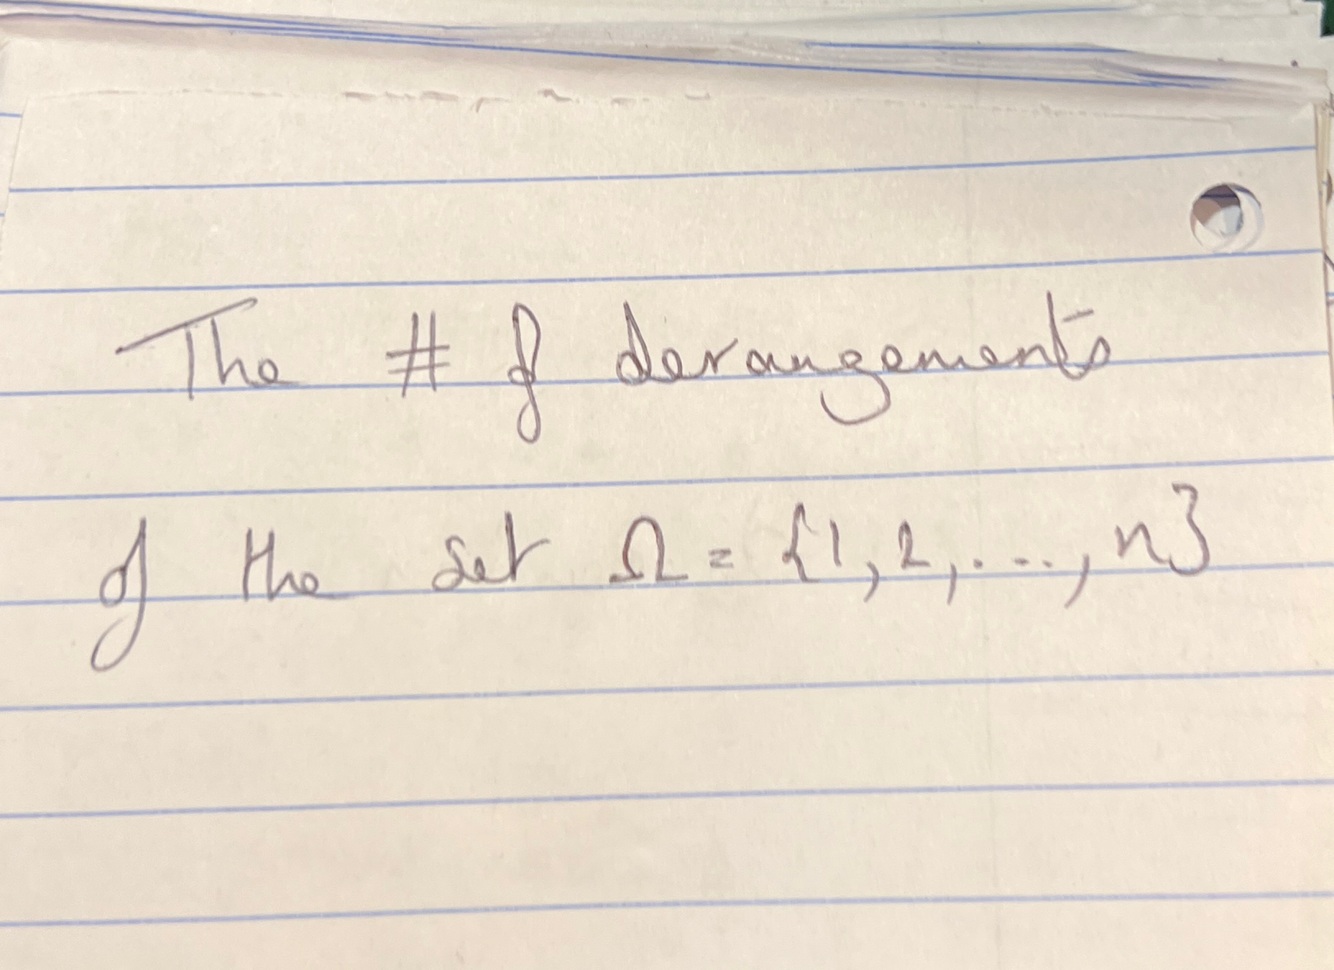 The # of derangements
of the set Ω = {1, 2, ..., n}